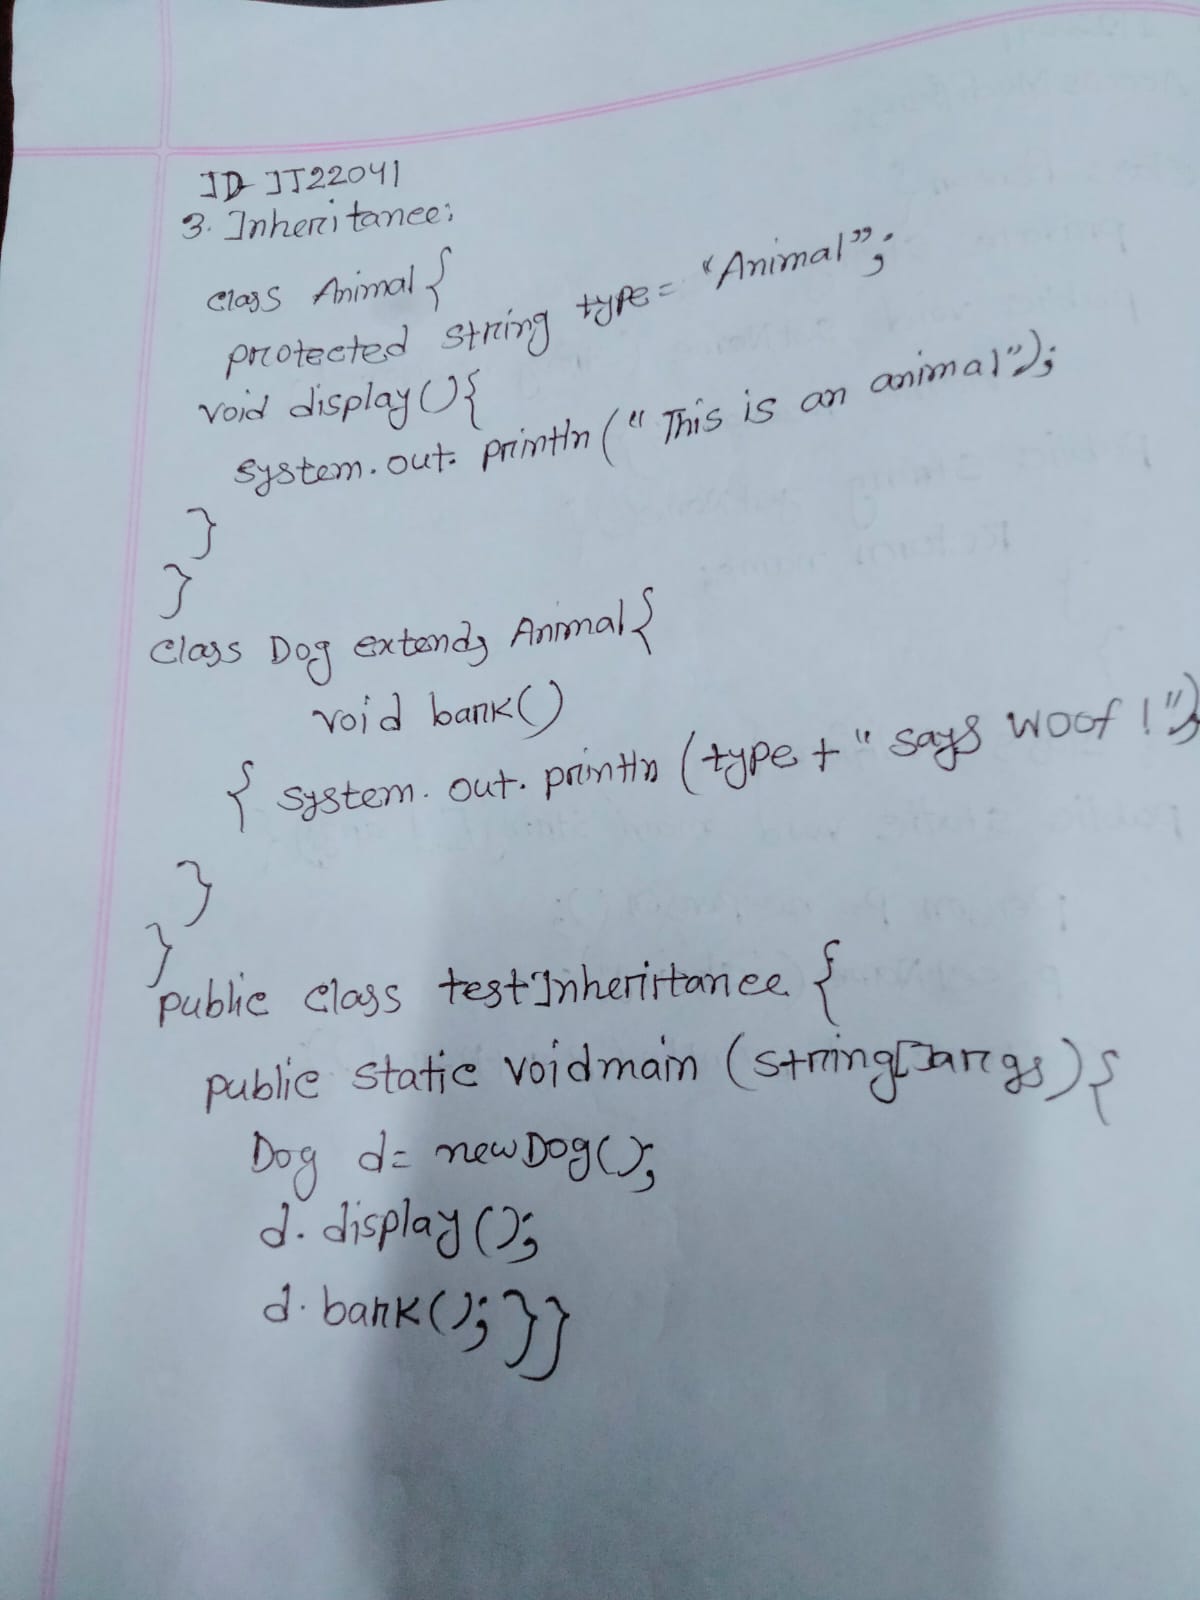 ID IT22041
3. Inheritance:
class Animal {
protected string type = "Animal";
void display(){
system.out.println("This is an animal");
}
}
class Dog extends Animal{
void bark()
{ system.out.println(type + " says woof!");
}
}
public class testInheritance {
public static void main (string[] args){
Dog d= new Dog();
d.display();
d.bark();}}